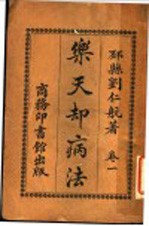 邳縣劉仁航著
卷一
樂天却病法
商務印書館出版